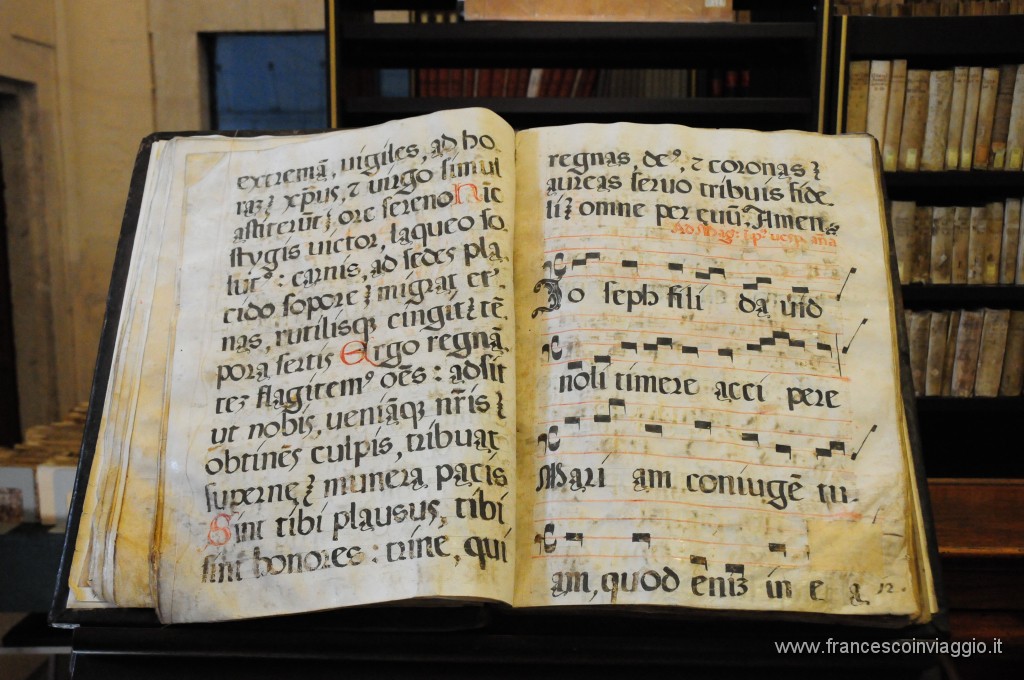 extremã, vigiles, ad ho.
raȝ xp̃us, ⁊ virgo simul
astiterũt ȝ ore sereno Hĩc
stygis victor, laqueo so.
lutꝰ: carnis, ad sedes pla.
cido sopore ȝ migrat etꝰ.
nas, rutilisqȝ cingit ȝ tẽ.
pora sertis Ergo regnã.
teȝ flagitemꝰ oẽs: adsit
ut nobis, veniãqȝ nr̃is ȝ
obtinẽs culpis, tribuat
supernę ȝ munera pacis
Sint tibi plausus, tibi
sint honores: trine, qui
regnas, dcꝰ, ⁊ coronas ȝ
aureas servo tribuis fide.
li ȝ omne per ęuũ, Amen,
Ad Mag: ȝ pᵒ vesp. aña
Jo seph fili da vid
noli timere acci pere
Mari am coniugẽ tu.
am, quod enIȝ in e a
12.
www.francescoinviaggio.it